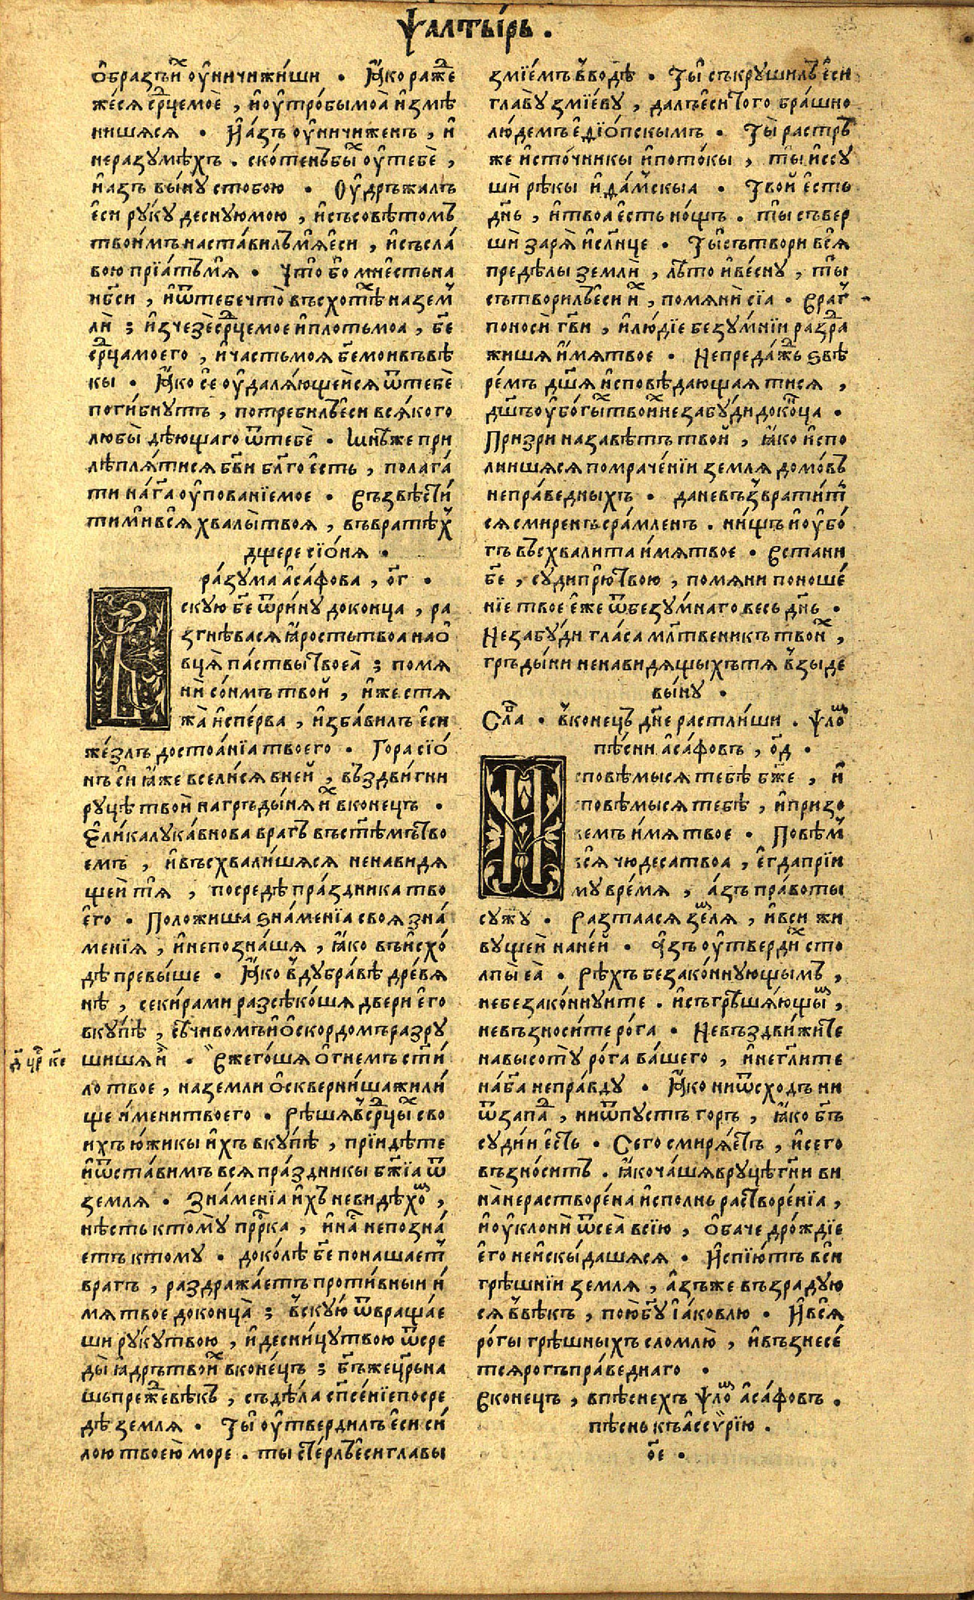 Ѱалты́рь .
ѻ҆бразъи҆̑ оу҆ничижи́ши . Ꙗ҆́ко раж̾е
же́сѧ ср҃цемоѐ , и҆оу҆тро́бымоѧ̀ и҆змѣ
ни́шѧсѧ . И҆ а҆́зъ оу҆ничиже́нъ , и҆
неразꙋмѣ́хъ . ско́тенъбы́хъ оу҆тебѐ ,
и҆ а҆зъ вы́нꙋ стобо́ю . Оу҆дръжа́лъ
є҆си рꙋ́кꙋ деснꙋ́юмою̀ , и҆съсовѣ́томъ
твои́мъ наста́вилъмѧ̀є҆си , и҆съсла́
вою прїѧ́тъмѧ̀ . Что̀ бо мѝ є҆стьна
нб҃си , и҆ѿтебечто̀ въсхотѣ́хъ назем
лѝ ; и҆зчезѐ ср҃цемоѐ и҆пло́тьмоѧ̀ , бж҃е
ср҃цамоего̀ , и҆ча́стьмоѧ̀ бж҃емо́и въвѣ́
кы . Ꙗ҆́ко сѐ оу҆далѧ́ющеисѧ ѿтебѐ
поги́бнꙋтъ , потреби́лъє҆си всѧ́кого
любы̀ дѣ́ющаго ѿтебѐ . Мнѣ́же при
лѣплѧ́тисѧ бг҃ви бл҃го є҆́сть , полага́
ти наг҃а оу҆пова́нїемоѐ . Възвѣсти́
тимѝ всѧ̀ хвалы̀твоѧ̀ , въвратѣ́х
дще́ре сїо́нѧ .
ра́зꙋма а҆са́фова , о҃г .
Въскꙋ́ю бж҃е ѿри́нꙋ доконца̀ , ра
згнѣ́васѧ ꙗ҆́ростьтвоѧ̀ нао
вцѧ̀ па́ствы твоеѧ̀ ; помѧ
нѝ со́нмъ тво́й , и҆́же стѧ
жа̀ и҆спе́рва , и҆зба́вилъ є҆си
же́злъ достоѧ́нїа твоего̀ . Гора̀ сїо́
нъ сїѝ ꙗ҆́же всели́сѧ вне́й , въздви́гни
рꙋ́цѣ твоѝ нагръды́нѧ и҆х̾ вконе́цъ .
Є҆ли́ка лꙋка́внова вра́гъ въст҃ѣ́мътво
е́мъ , и҆въсхвали́шѧсѧ ненави́дѧ
щеи тѧ̀ , посредѐ пра́здника тво
его̀ . Положи́ша ѕна́менїа своѧ̀ зна́
менїѧ , и҆непозна́шѧ , ꙗ҆́ко въи҆схо́
дѣ превы́ше . Ꙗ҆́ко вдꙋбра́вѣ дре́вѧ
нѣ , секи́рами разсѣко́шѧ две́ри є҆го̀
вкꙋ́пѣ , сѣ́чивомъ и҆о҆ско́рдомъ разрꙋ
шишѧ̀ и҆̀ . Вжего́шѧ о҆гне́мъ ст҃и
ло твоѐ , наземли о҆скверни́ша жили́
ще и҆́менитвоего̀ . Рѣ́шѧ въср҃цы́хъ сво
ихъ ю҆́жикы и҆́хъ вкꙋ́пѣ , прїидѣ́те
и҆ѿста́вимъ всѧ̀ пра́здникы бж҃їа ѿ
землѧ̀ . Зна́менїи и҆́хъ неви́дѣхом ,
нѣ́сть ктомꙋ̀ прⷪ҇рка , и҆на́съ непозна́
етъ ктомꙋ̀ . доко́лѣ бж҃е понаша́ет
вра́гъ , раздража́етъ проти́вныи и҆́
мѧ твоѐ доконца̀ ; въскꙋ́ю ѿвраща́е
ши рꙋ́кꙋтвою̀ , и҆ десни́цꙋтвою̀ ѿсре
ды̀ ꙗ҆́дрътвои́хъ вконе́цъ ; бг҃ъжецр҃ьна
шьпре́ж̾евѣ́къ , съдѣ́ла сп҃се́нїепосре
дѣ̀ землѧ̀ . Ты̀ оу҆тверди́лъ є҆си́ си́
лою твое́ю мо́ре . ты̀ сте́рлъє҆си главы̀
змїе́мъ вводѣ̀ . Ты̀ съкрꙋши́лъє҆си
главꙋ̀ змїе́вꙋ , далъє҆си того̀ бра́шно
лю́демъ є҆ѳїо́пскымъ . Ты̀ растръ́
же и҆сто́чникы и҆пото́кы , ты̀ и҆ссꙋ
шѝ рѣ́кы и҆да́мскыа . Тво́й є҆́сть
дн҃ь , и҆твоѧ̀ є҆́сть но́щъ . ты̀ съвер
шѝ зарѧ̀ и҆сл҃нце . Ты̀ сътворѝ всѧ̀
предѣ́лы землѝ , лѣ́то и҆ве́снꙋ , ты̀
сътвори́лъє҆си и҆̀ , помѧнѝ сїа̀ . Враг
поносѝ гв҃и , и҆лю́дїе безꙋ́мнїи раздра
жи́шѧ и҆́мѧтвоѐ . Непреда́ж̾ь ѕвѣ
ре́мъ дш҃ѧ и҆сповѣ́дающаѧ тисѧ ,
дш҃ъ оу҆бо́гыхътвои́хъ незабꙋ́ди доконца .
Призри назавѣ́тъ тво́й , ꙗ҆́ко и҆спо
лнишѧсѧ помраче́нїи землѧ̀ домо́въ
непра́ведныхъ . даневъзврати́т
сѧ смире́нъ сра́мленъ . ни́щъ и҆оу҆бо́
гъ въсхвали́та и҆́мѧтвоѐ . Въстани
бж҃е , сꙋдипрю̀твою̀ , помѧни поноше́
нїе твоѐ е҆́же ѿбезꙋ́мнаго весь дн҃ь .
Незабꙋ́ди гла́са мл҃твеникъ твои́х ,
гръды́ни ненави́дѧщыхътѧ̀ взы́де
вы́нꙋ .
Сла́ . вконе́цъ дн҃е растли́ши . Ѱало́м
пѣ́сни а҆са́фовъ , о҃д .
Исповѣ́мысѧ тебѣ̀ бж҃е , и҆
сповѣ́мысѧ тебѣ̀ , и҆призо
ве́мъ и҆́мѧ твоѐ . Повѣ́м
всѧ̀ чюдеса̀твоѧ̀ , є҆гда̀прїи
мꙋ̀ вре́мѧ , а҆́зъ пра́воты
сꙋжꙋ̀ . Разта́асѧ землѧ̀ , и҆вси жи
вꙋщеи нане́й . А҆́зъ оу҆тверди́х сто
лпы̀ еѧ̀ . Рѣ́хъ безако́ннꙋющымъ ,
небезако́ннꙋите . и҆съгрѣ́шѧ́ющы́м ,
невъзноси́те ро́га . Невъздви́жи́те
навысотꙋ̀ ро́га ва́шего , и҆негл҃ите
на бг҃а непра́вдꙋ . Ꙗ҆́ко ниѿсхо́дъ ни
ѿза́пад , ниѿпꙋ́стъ го́ръ , ꙗ҆́ко бг҃ъ
сꙋдиѝ є҆сть . Сего̀ смирѧ́етъ , и҆сего̀
възно́ситъ . ꙗ҆́коча́шѧврꙋцѣ̀гн҃и ви
на̀ нерастворе́на и҆спо́лнь растворе́нїа ,
и҆оу҆клонѝ ѿсеа̀ всїю̀ , о҆ба́че дро́ждїе
є҆го̀ неи҆скы́дашѧсѧ . И҆спїю́тъ вси
грѣ́шнїи землѧ̀ , а҆́зъже възра́дꙋю
сѧ ввѣ́къ , пою̀бг҃ꙋ і҆а́ковлю . И҆всѧ̀
ро́гы грѣ́шныхъ сломлю̀ , и҆възнесе́
тсѧро́гъпра́веднаго .
Вконе́цъ , впѣ́снехъ Ѱало́м а҆са́фовъ .
пѣ́снь къа҆ссѵ́рїю .
о҃е .